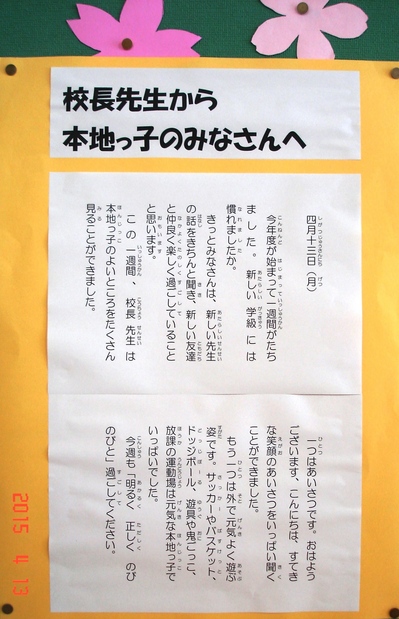 校長先生から
本地っ子のみなさんへ
四月十三日（月）
今年度が始まって一週間がたち
ました。新しい学級には
慣れましたか。
きっとみなさんは、新しい先生
の話をきちんと聞き、新しい友達
と仲良く楽しく過ごしていること
と思います。
この一週間、校長先生は
本地っ子のよいところをたくさん
見ることができました。
一つはあいさつです。おはよう
ございます、こんにちは、すてき
な笑顔のあいさつをいっぱい聞く
ことができました。
もう一つは外で元気よく遊ぶ
姿です。サッカーやバスケット、
ドッジボール、遊具や鬼ごっこ、
放課の運動場は元気な本地っ子で
いっぱいでした。
今週も「明るく　正しく　のび
のびと」過ごしてください。
2015 4 13